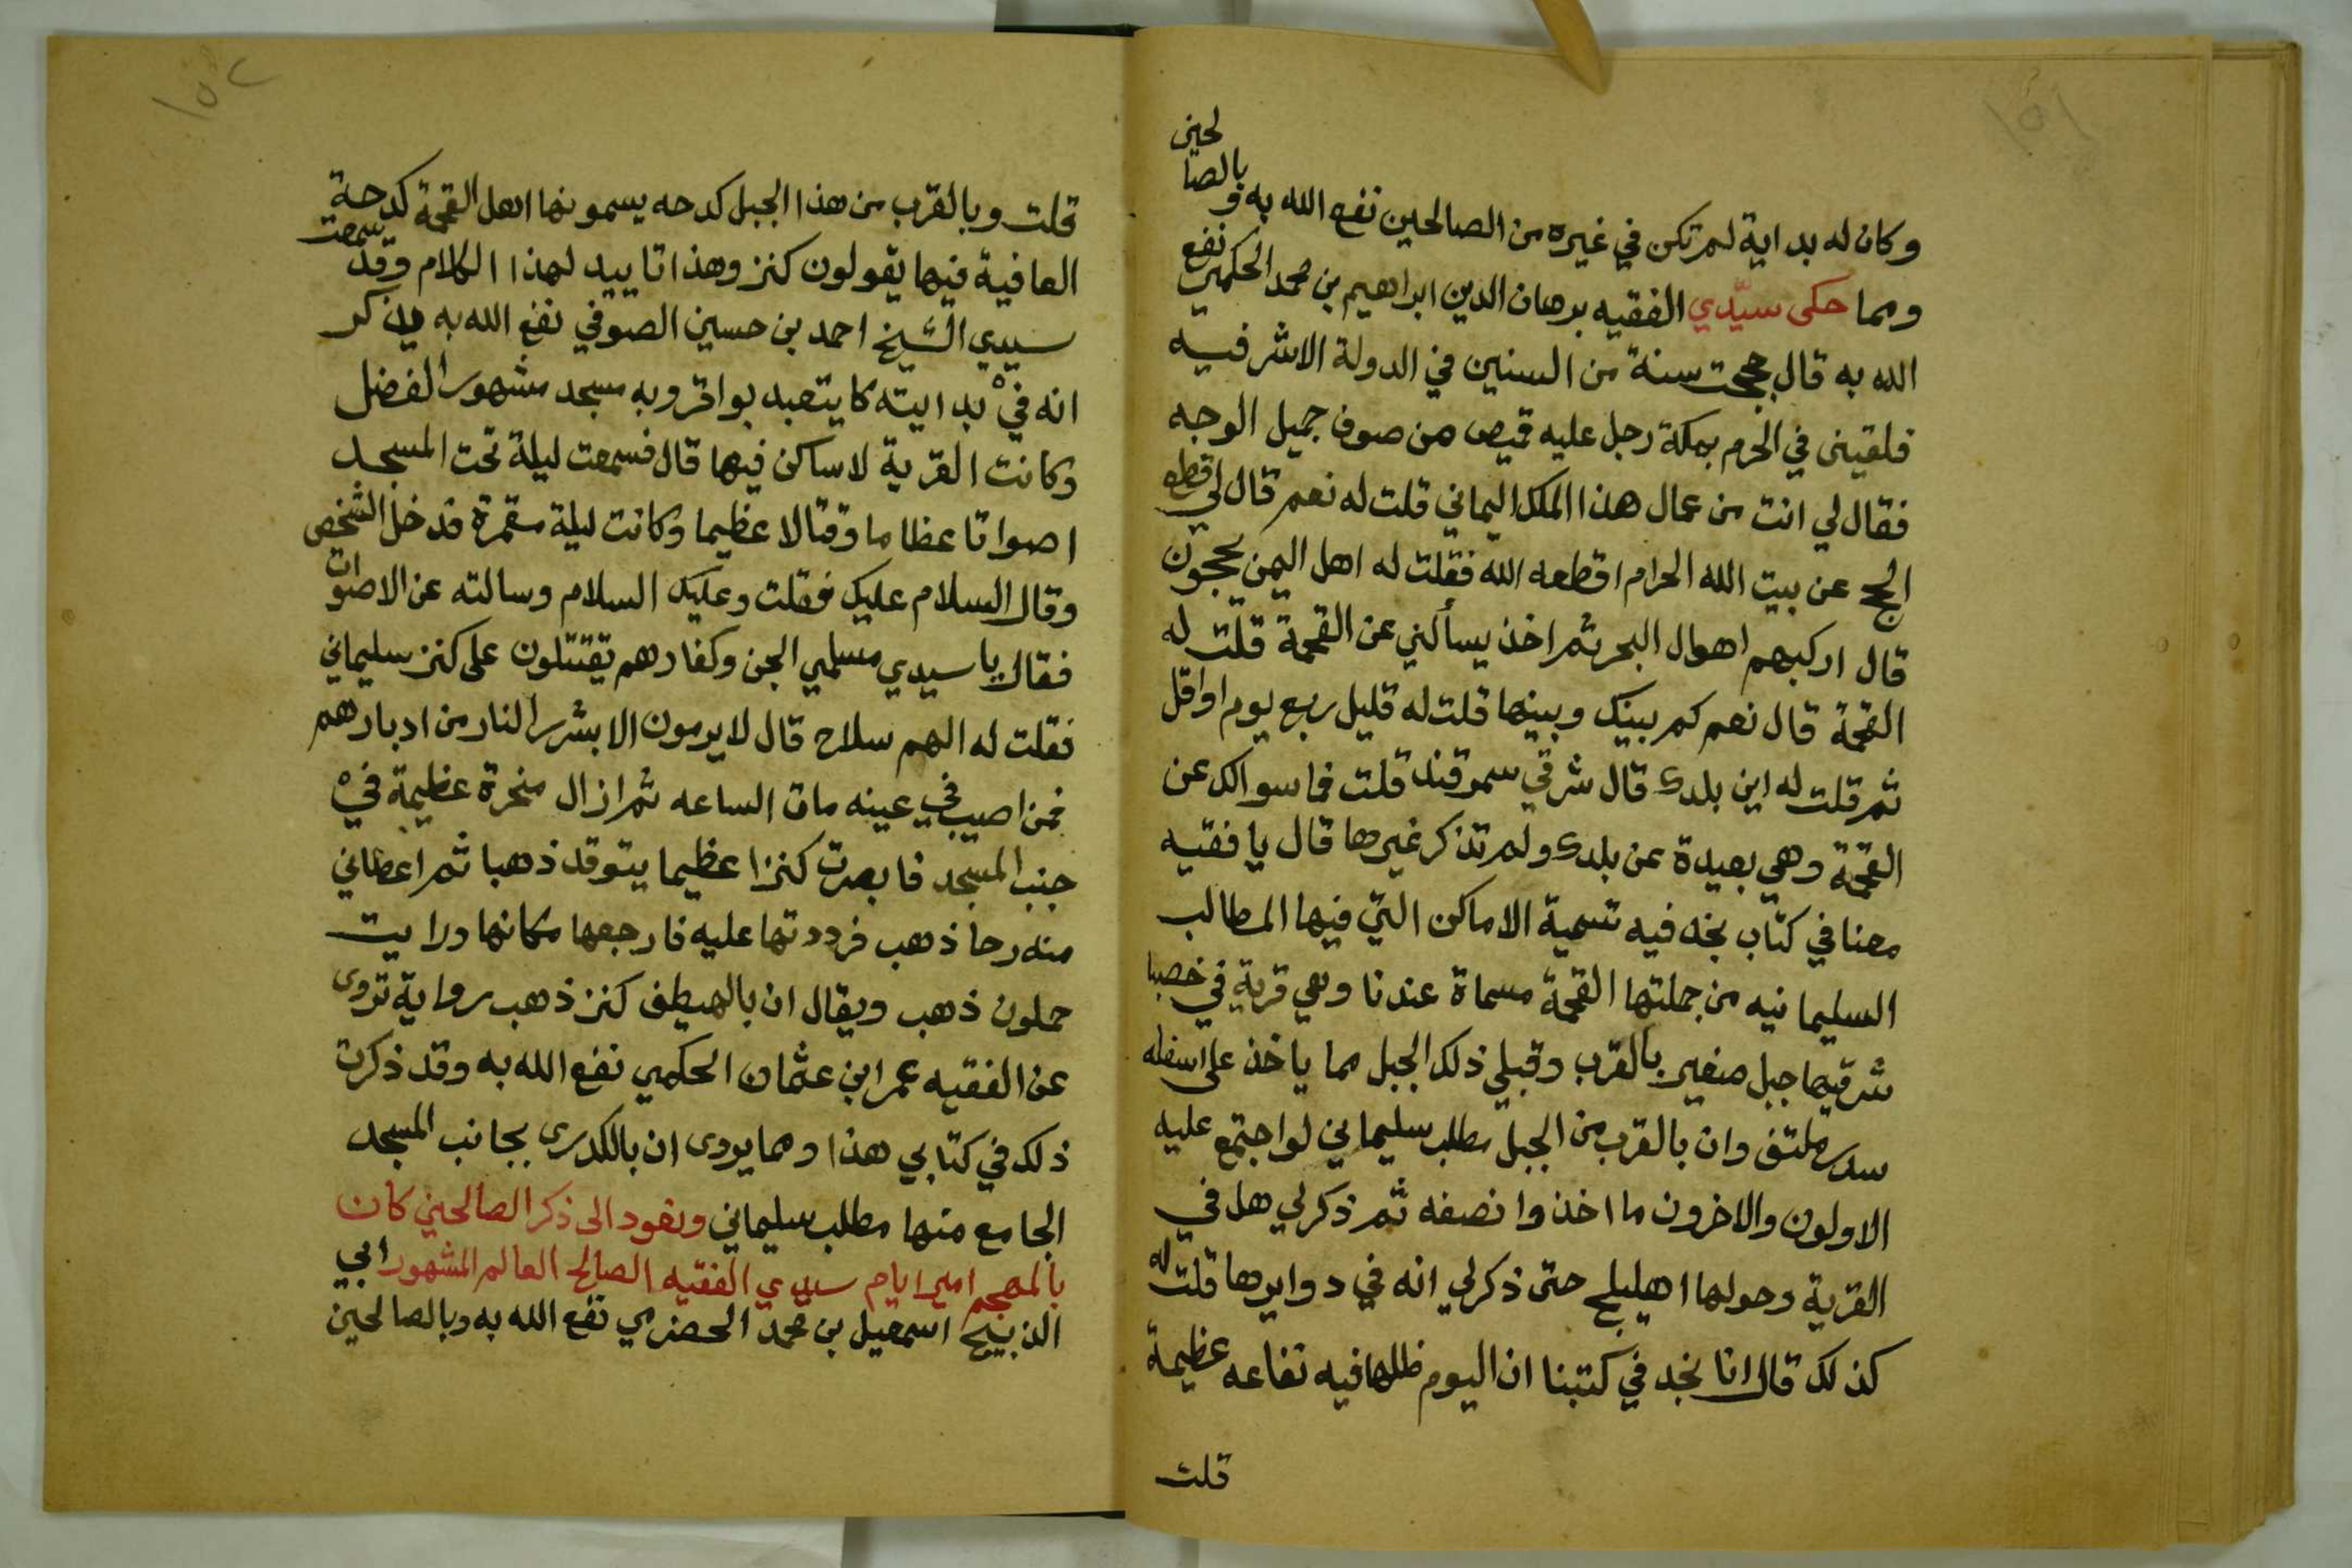 ١٥١
وكان له بداية لم تكن في غيره من الصالحين نفع الله به وبالصالحين
ومما حكى سيّدي الفقيه برهان الدين ابراهيم بن محمد الحكمي نفع
الله به قال حججت سنة من السنين في الدولة الاشرفيه
فلقيني في الحرم بمكة رجل عليه قميص من صوف جميل الوجه
فقال لي انت من عمال هذا الملك اليماني قلت له نعم قال لي اقطع
الحج عن بيت الله الحرام اقطعه الله فقلت له اهل اليمن يحجون
قال اركبهم اهوال البحر ثم اخذ يسألني عن القحمة قلت له
القحمة قال نعم كم بينك وبينها قلت له قليل ربع يوم او اقل
ثم قلت له اين بلدك قال شرقي سمرقند قلت فما سوالك عن
القحمة وهي بعيدة عن بلدك ولم تذكر غيرها قال يا فقيه
معنا في كتاب نجد فيه تسمية الاماكن التي فيها المطالب
السليمانيه من جملتها القحمة مسماة عندنا وهي قرية في
شرقيها جبل صغير بالقرب وقبلي ذلك الجبل مما ياخذ على اسفله
سدر ملتف وان بالقرب من الجبل مطلب سليماني لو اجتمع عليه
الاولون والاخرون ما اخذوا نصفه ثم ذكر لي هل في
القرية وحولها اهليلج حتى ذكر لي انه في دوايرها قلت له
كذلك قال انا نجد في كتبنا ان اليوم فيه عظيمة
قلت
١٥٢
قلت وبالقرب من هذا الجبل كدحه يسمونها اهل القحمة كدحة
العافية فيها يقولون كنز وهذا تاييد لهذا الكلام وقد سمعت
سيدي الشيخ احمد بن حسين الصوفي نفع الله به يذكر
انه في بدايته كا يتعبد بواقر وبه مسجد مشهور الفضل
وكانت القرية لا ساكن فيها قال فسمعت ليلة تحت المسجد
اصواتا عظاما وقتالا عظيما وكانت ليلة مقمرة فدخل الشخص
وقال السلام عليك فقلت وعليك السلام وسالته عن الاصوات
فقال يا سيدي مسلمي الجن وكفارهم يقتتلون على كنز سليماني
فقلت له الهم سلاح قال لا يرمون الا بشرر النار من ادبارهم
فمن اصيب في عينه مات الساعه ثم ازال صخرة عظيمة في
جنب المسجد فابصرت كنزا عظيما يتوقد ذهبا ثم اعطاني
منه رحا ذهب فرددتها عليه فارجعها مكانها ورايت
حملون ذهب ويقال ان بالهيطف كنز ذهب رواية تروى
عن الفقيه عمر ابن عثمان الحكمي نفع الله به وقد ذكرت
ذلك في كتابي هذا ومما يروى ان بالكدرى بجانب المسجد
الجامع منها مطلب سليماني ونعود الى ذكر الصالحين كان
بالمهجم امير ايام سيدي الفقيه الصالح العالم المشهور ابي
الذبيح اسمعيل بن محمد الحضرمي نفع الله به وبالصالحين